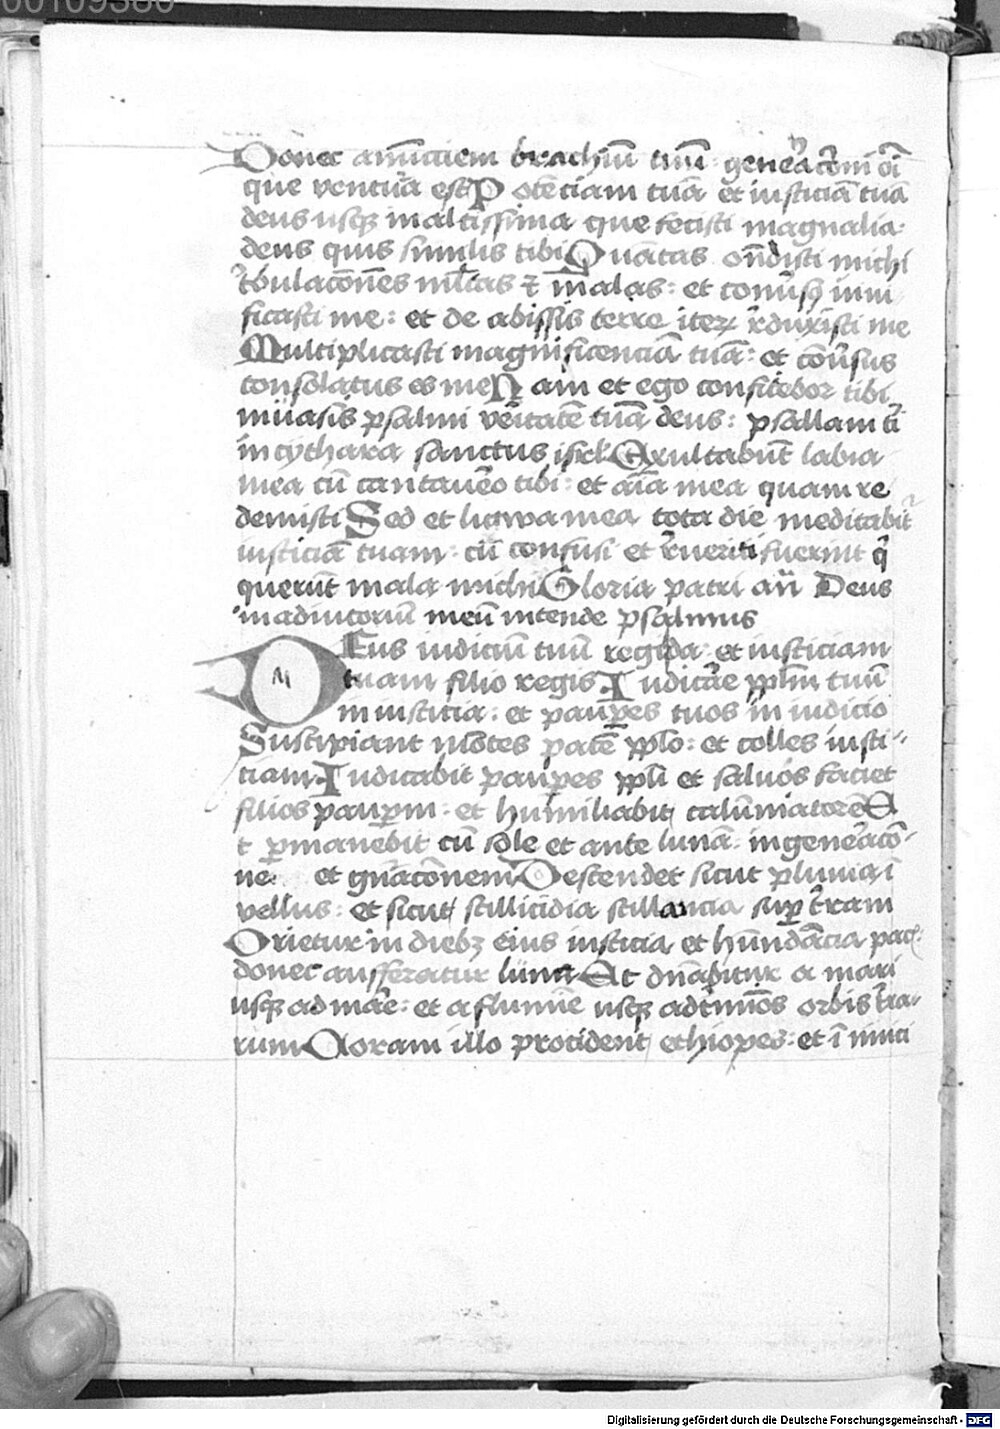 00109380
Donec annūctiem brachiū tuū: gen̄eacōni oī
que ventura est P otēciam tuā et iusticiā tuā
deus usqȝ in altissima que fecisti magnalia:
deus quis similis tibi Quātas on̄disti michi
t̄bulacōnes ml̄tas ⁊ malas: et con̄ūsȝ iuui
ficasti me: et de abissis terre iteꝝ r̄duxisti me
Multiplicasti magnificenciā tuā: et cōūsus
consolatus es me N am et ego confitebor tibi
in uasis psalmi ūitatē tuā deus: psallam t̄
in cythara sanctus isrl̄ Exultabūt labia
mea cū cantauēo tibi: et aīa mea quam re
demisti Sed et lingwa mea tota die meditabit᷑
iusticiā tuam: cū confusi et r̄ueriti fuerint q̄
querūt mala michi Gloria patri an̄ Deus
in adiutoriū meū intende psalmus
DEus iudiciū tuū regi da: et iusticiam
tuam filio regis I udicāe ppl̄m tuū
in iusticia: et paup̄es tuos in iudicio
Suscipiant mōtes pacē pplo: et colles iusti-
ciam I udicabit paup̄es ppl̄i et saluos faciet
filios paup̄m: et humiliabit calūniatorē E
t ꝑmanebit cū sole et ante lunā: in geneācō-
ne et gn̄acōnem Descendet sicut pluuia ī
vellus: et sicut stillicidia stillancia suꝑ t̄ram
Orietur in diebȝ eius iusticia et hūndācia pac̄:
donec aufferatur luna Et dn̄abitur a mari
usqȝ ad maē: et a flumīe usqȝ ad t̄mīos orbis t̄ra-
rum Coram illo procident ethiopes: et ī mici
Digitalisierung gefördert durch die Deutsche Forschungsgemeinschaft - DFG